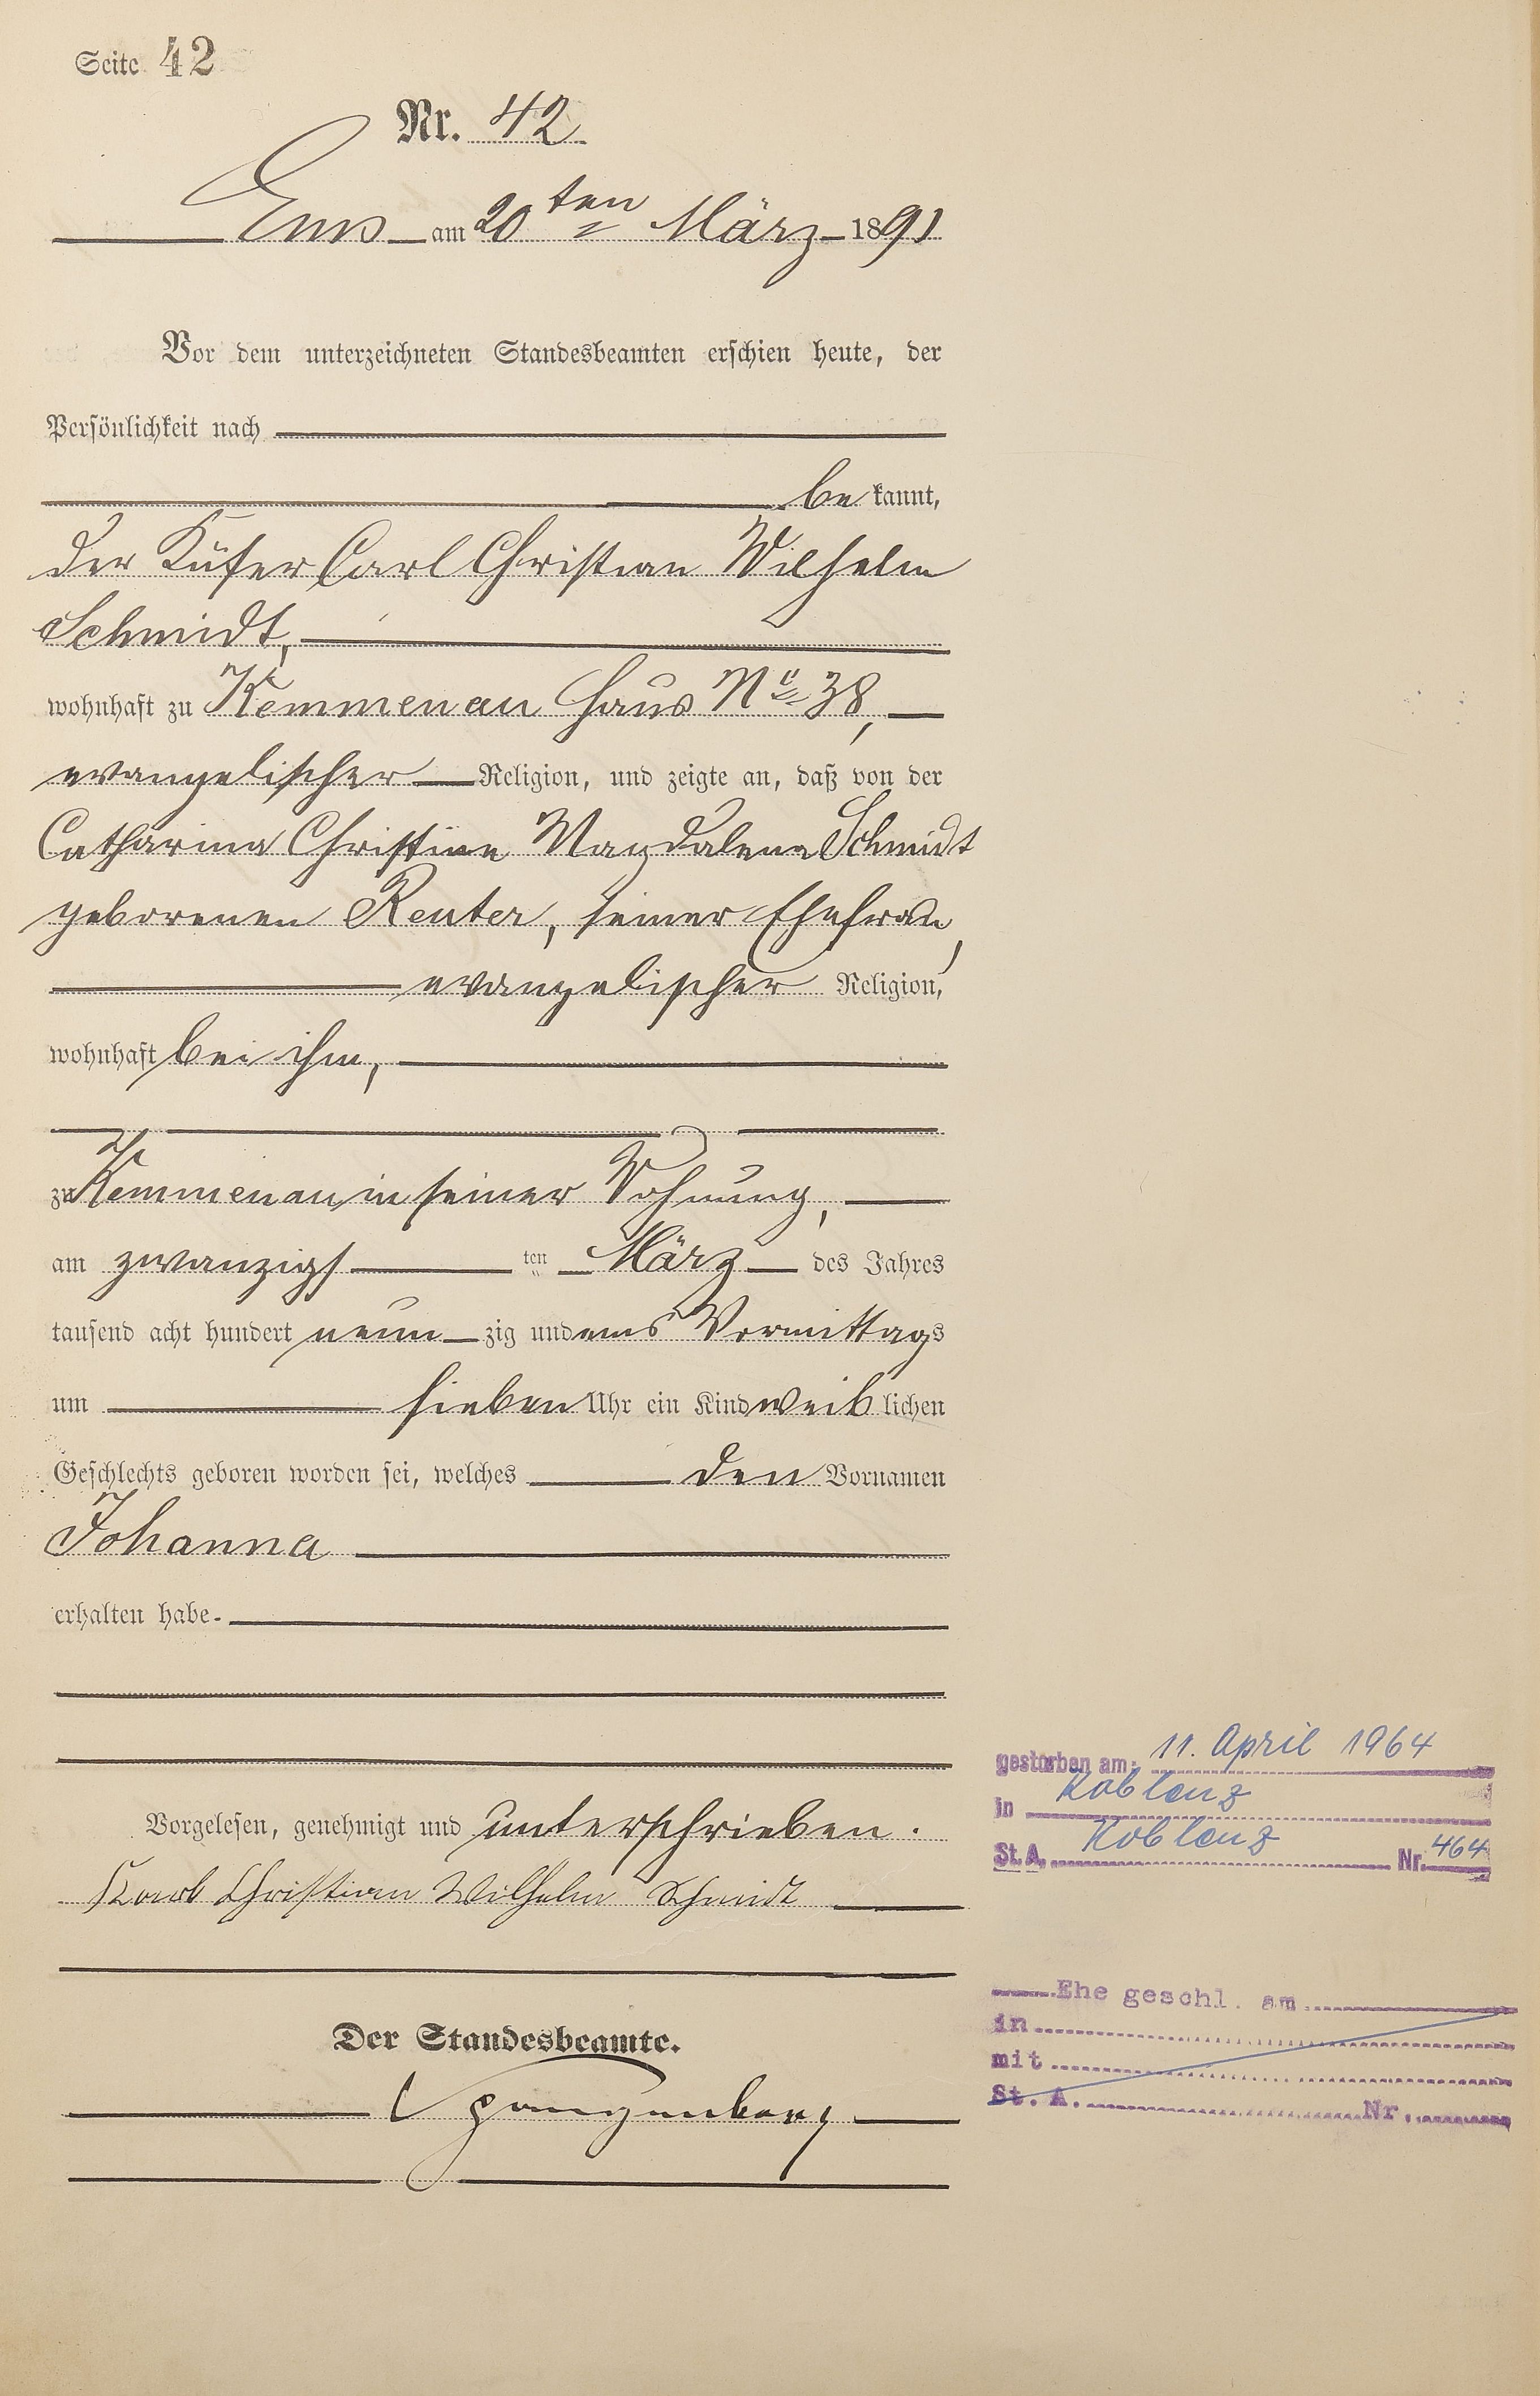 Seite 42
Nr. 42
Ems am 20ten März 1891
Vor dem unterzeichneten Standesbeamten erschien heute, der
Persönlichkeit nach
be kannt,
der Küfer Carl Christian Wilhelm
Schmidt,
wohnhaft zu Kemmenau Haus No 38,
evangelischer Religion, und zeigte an, daß von der
Catharina Christine Magdalena Schmidt
geborenen Reuter, seiner Ehefrau,
evangelischer Religion,
wohnhaft bei ihm,
zu Kemmenau in seiner Wohnung,
am zwanzigs ten März des Jahres
tausend acht hundert neun zig und eins Vormittags
um sieben Uhr ein Kind weib lichen
Geschlechts geboren worden sei, welches den Vornamen
Johanna
erhalten habe.
Vorgelesen, genehmigt und unterschrieben.
Karl Christian Wilhelm Schmidt
Der Standesbeamte.
Spangenberg
gestorben am: 11. April 1964
in Koblenz
St. A. Koblenz Nr. 464
Ehe geschl. am
in
mit
St. A. Nr.